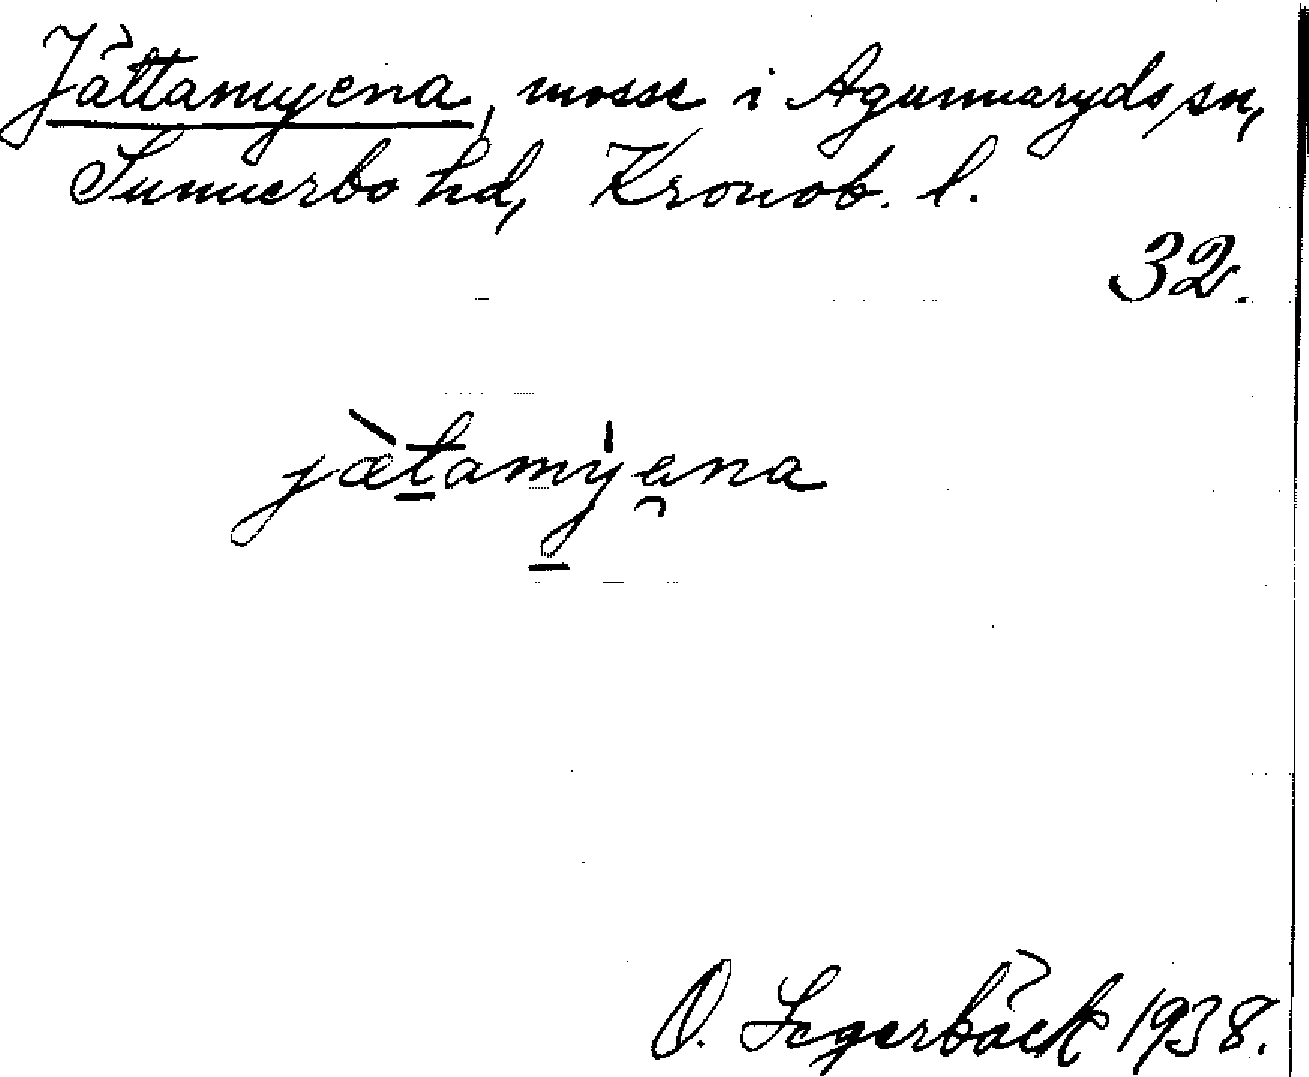 Jättamyena, mosse i Agunnaryds sn,
Sunnerbo hd, Kronob. l.
32.
jætamyena
O. Segerbäck 1938.